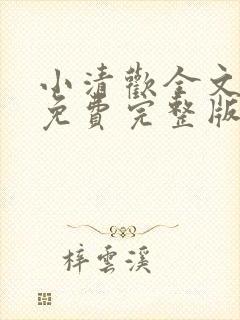 小清歡全文
免費完整版
梓雲溪